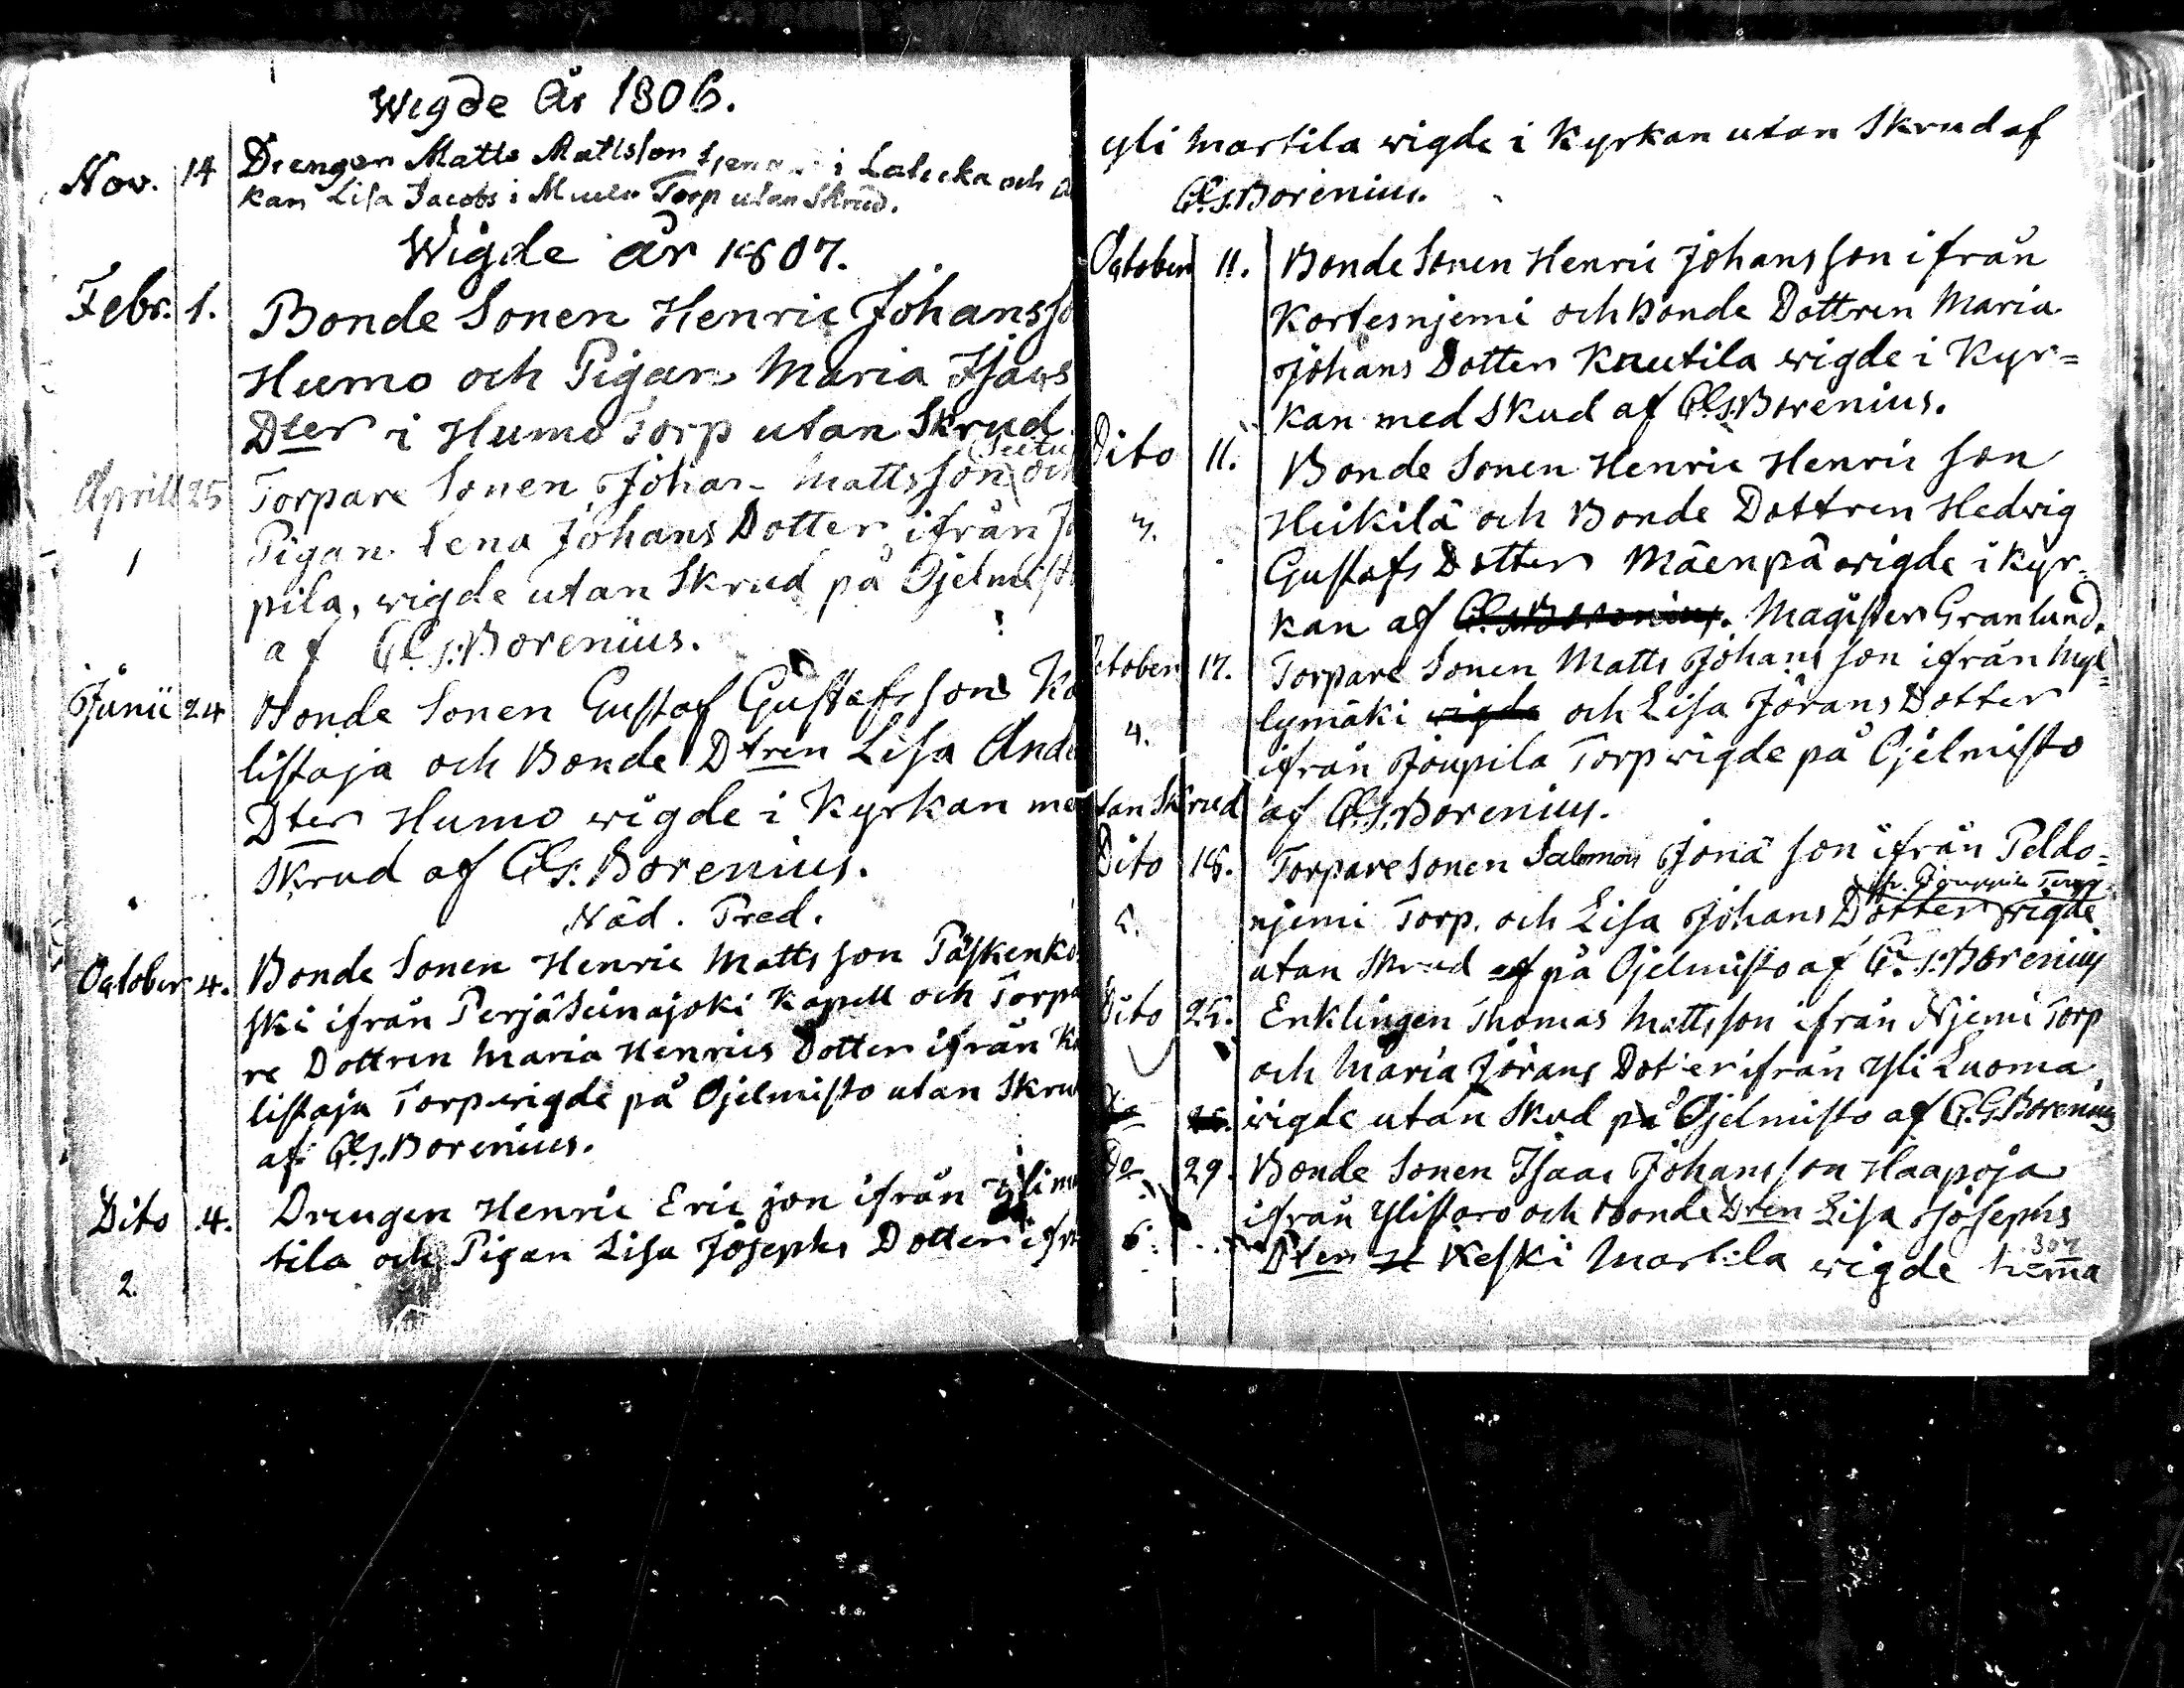 Wigde År 1806.
Nov. 14 Drengen Matts Mattsson i Lalucka och
kan Lisa Jacobs i Torp utan Skrud.
Wigde år 1807.
Febr. 1. Bonde Sonen Henric Johansso
Humo och Pigan Maria Isaacs
Dter i Humo Torp utan Skrud
Aprill 25 Torpare Sonen Johan Mattsson och
1 Pigan Lena Johans Dotter ifrån Jo
pila, wigde utan Skrud på Ojelmisto
af G.S. Borenius.
Junii 24 Bonde Sonen Gustaf Gustafsson Ko
listaja och Bonde Dtren Lisa Ande
Dter Humo wigde i Kyrkan me
Skrud af G.S. Borenius.
Nåd. Pred.
October 4. Bonde Sonen Henric Mattsson Päskenko
ski ifrån Perjäseinajoki Kapell och Torpa
re Dottren Maria Henrics Dotter ifrån Ko
listaja Torp wigde på Ojelmisto utan Skrud
af G.S. Borenius.
Dito 4. Drengen Henric Ericson ifrån Ylimar
tila och Pigan Lisa Josephs Dotter ifrå
2.
Yli martila wigde i Kyrkan utan Skrud af
G.S. Borenius.
October 11. Bonde Sonen Henric Johansson ifrån
Kortesnjemi och Bonde Dottren Maria
Johans Dotter Knutila wigde i Kyr=
kan med Skud af G.S. Borenius.
Dito 11. Bonde Sonen Henric Henricson
3. Heikilä och Bonde Dottren Hedwig
Gustafs Dotter Mäenpä wigde i Kyr=
kan af G.S. Borenius. Magister Granlund.
October 17. Torpare Sonen Matts Johansson ifrån Myl=
4. lymäki wigde och Lisa Jörans Dotter
ifrån Joupila Torp wigde på Ojelmisto
utan Skrud af G.S. Borenius.
Dito 18. Torpare Sonen Salomon Jonä son ifrån Peldo=
fr. Jouppila Torp
5. njemi Torp. och Lisa Johans Dotter wigde
utan Skrud af på Ojelmisto af G.S. Borenius
Dito 25. Enklingen Thomas Mattsson ifrån Njemi Torp
och Maria Jörans Dotter ifrån Yli Luoma,
Do 25. wigde utan Skud på Ojelmisto af G.S. Borenius
Do 29. Bonde Sonen Isaac Johansson Haapoja
6. ifrån Ylistaro och Bonde Dtren Lisa Josephs
Dter H Keski Martila wigde hem̄a
307